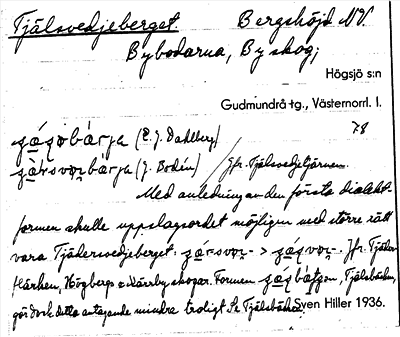 Tjälsvedjeberget. Bergshöjd NV.
Bybodarna, By skog;
Högsjö s:n
Gudmundrå tg., Västernorrl. l.
78
(E. J. Dahlberg)
(J. Bodén) / Jfr. Tjälsvedjetjärnen
Med anledning av den första dialekt-
formen skulle uppslagsordet möjligen med större rätt
vara Tjädersvedjeberget: > Jfr. Tjäder-
Högbergs o. skogar. Formen Tjälsbäcken,
gör dock detta antagande mindre troligt. Se Tjälsbäcken. Sven Hiller 1936.